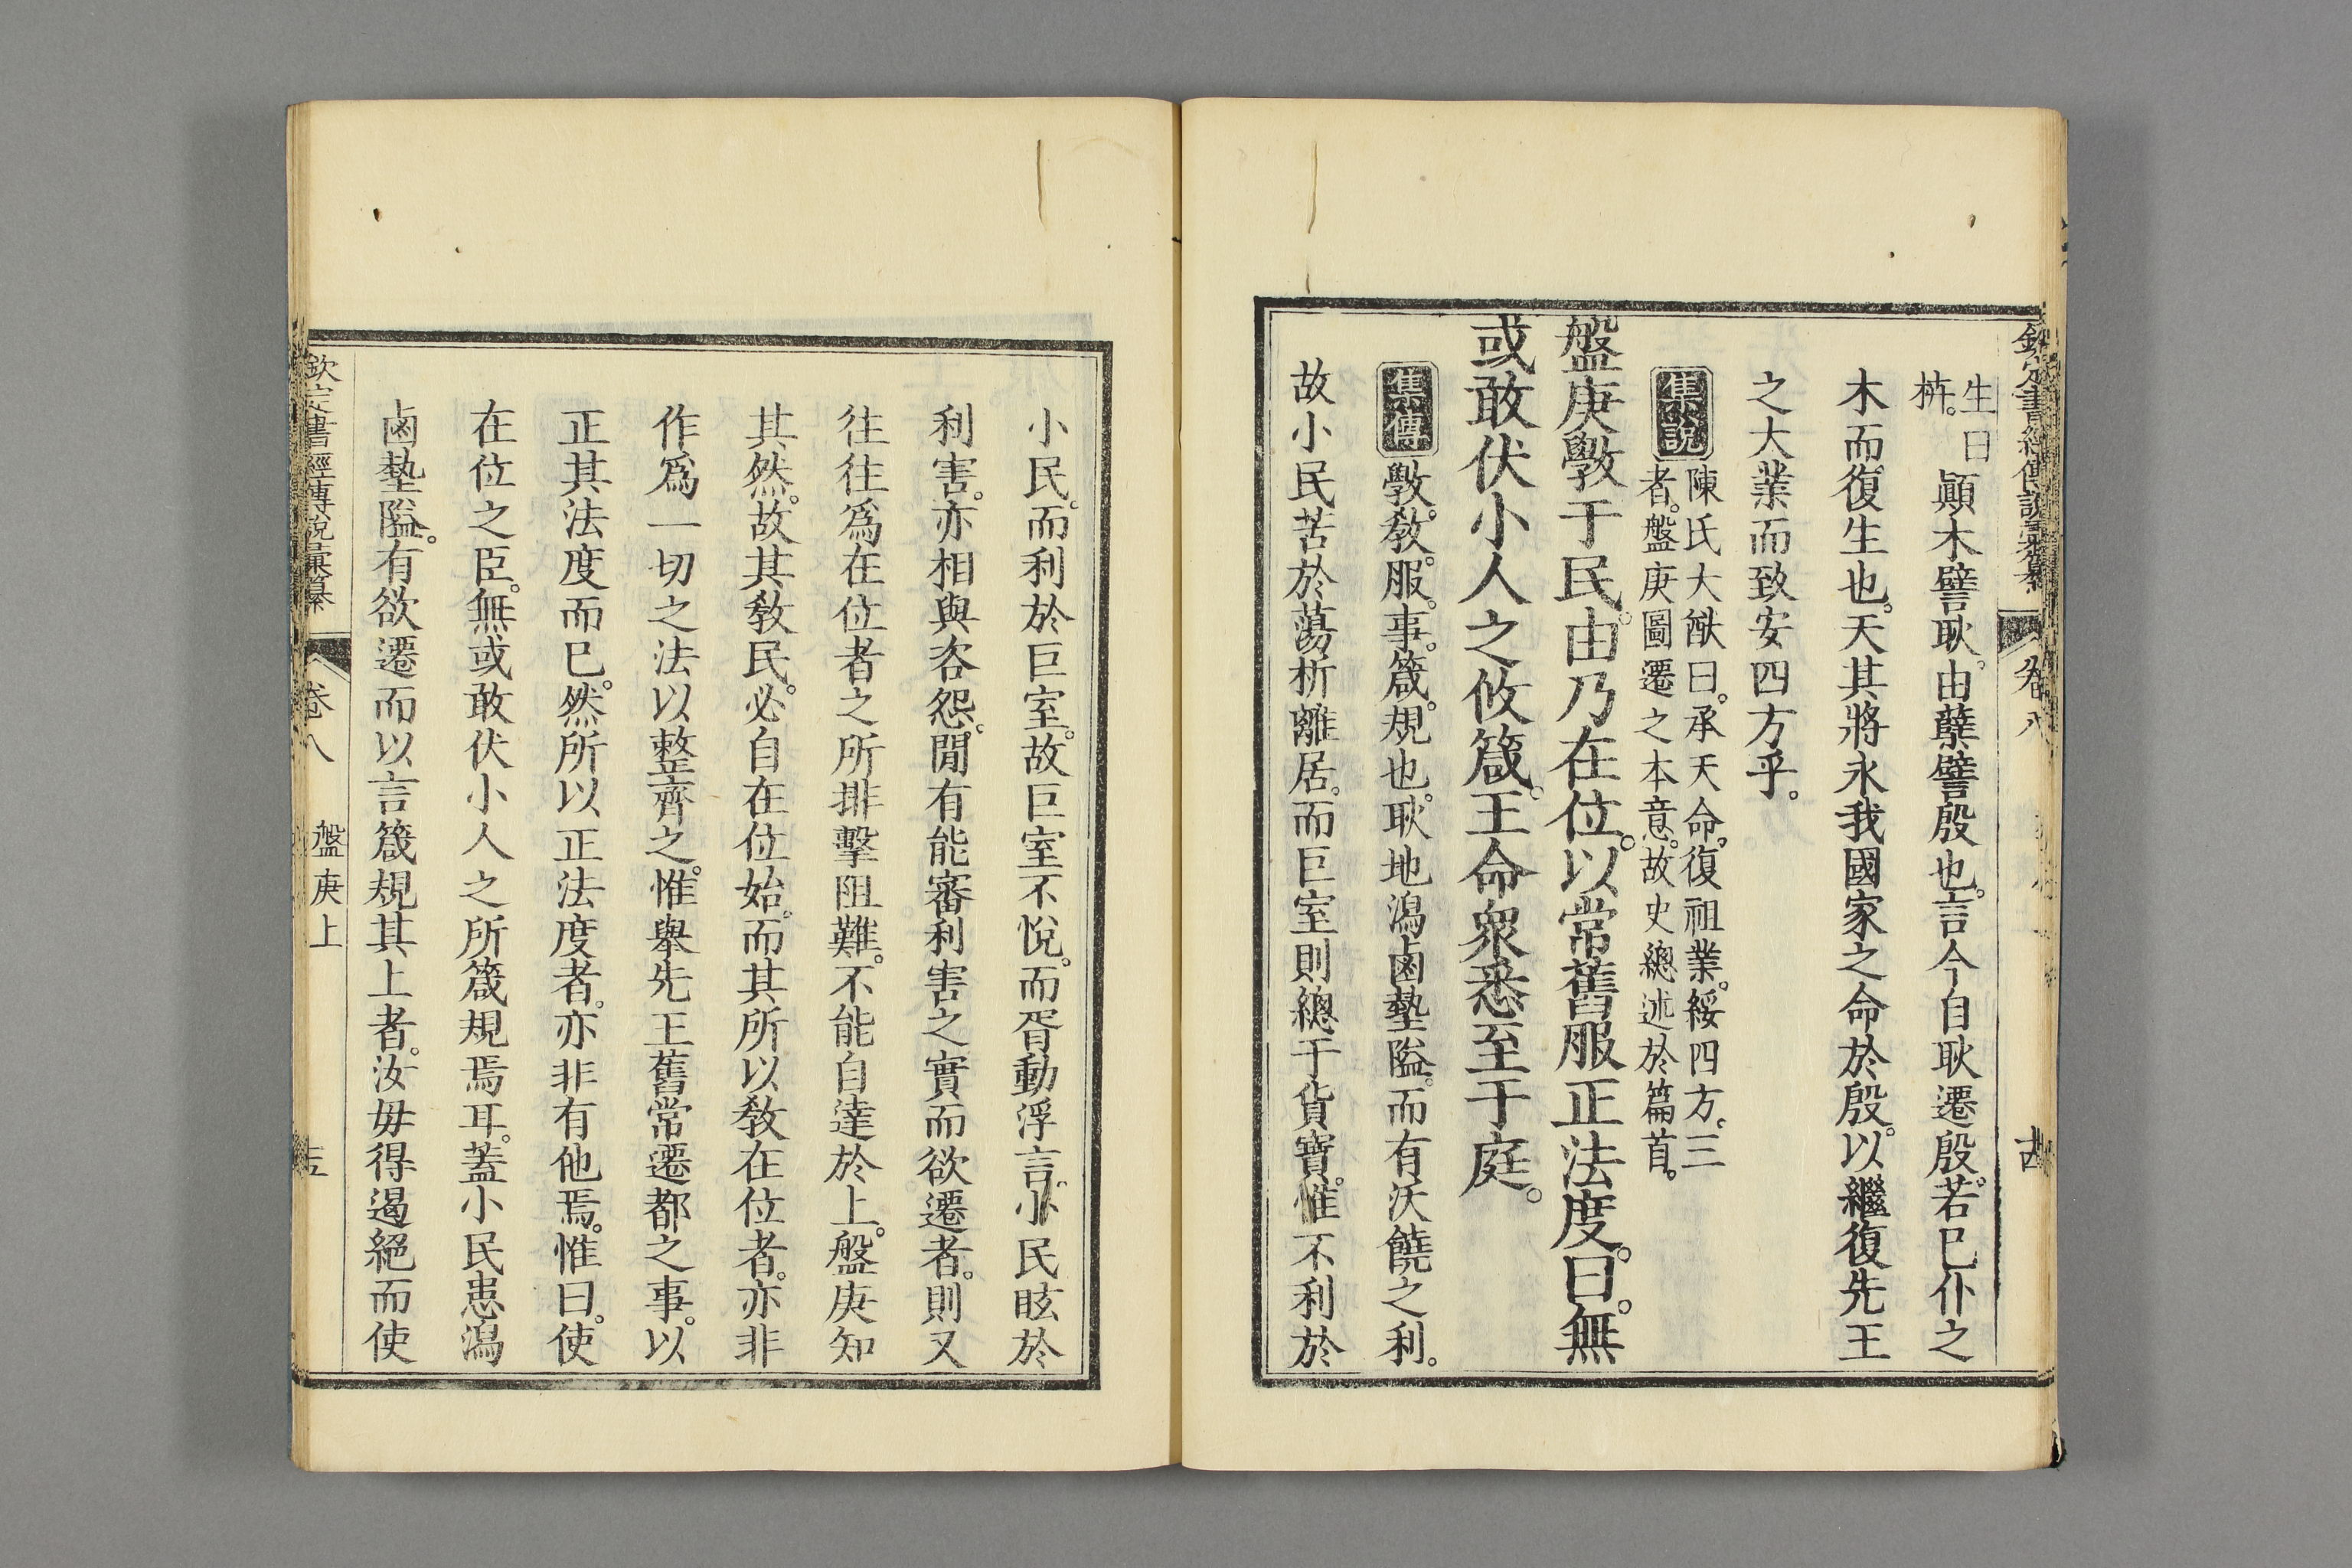 欽定書經傳說彙纂 卷八 十四
生曰枿。顚木譬耿。由蘖譬殷也。言今自耿遷殷。若已仆之
木而復生也。天其將永我國家之命於殷。以繼復先王
之大業而致安四方乎。
集說 陳氏大猷曰。承天命。復祖業。綏四方。三
者。盤庚圖遷之本意。故史總述於篇首。
盤庚斆于民。由乃在位。以常舊服正法度。曰。無
或敢伏小人之攸箴。王命衆悉至于庭。
集傳 斆。敎。服。事。箴。規也。耿地潟鹵墊隘。而有沃饒之利。
故小民苦於蕩析離居。而巨室則總于貨寶。惟不利於
小民。而利於巨室。故巨室不悅。而胥動浮言。小民眩於
利害。亦相與咨怨。閒有能審利害之實而欲遷者。則又
往往爲在位者之所排擊阻難。不能自達於上。盤庚知
其然。故其敎民。必自在位始。而其所以敎在位者。亦非
作爲一切之法以整齊之。惟舉先王舊常遷都之事。以
正其法度而已。然所以正法度者。亦非有他焉。惟曰。使
在位之臣。無或敢伏小人之所箴規焉耳。蓋小民患潟
鹵墊隘。有欲遷而以言箴規其上者。汝毋得遏絕而使
欽定書經傳說彙纂 卷八 盤庚上